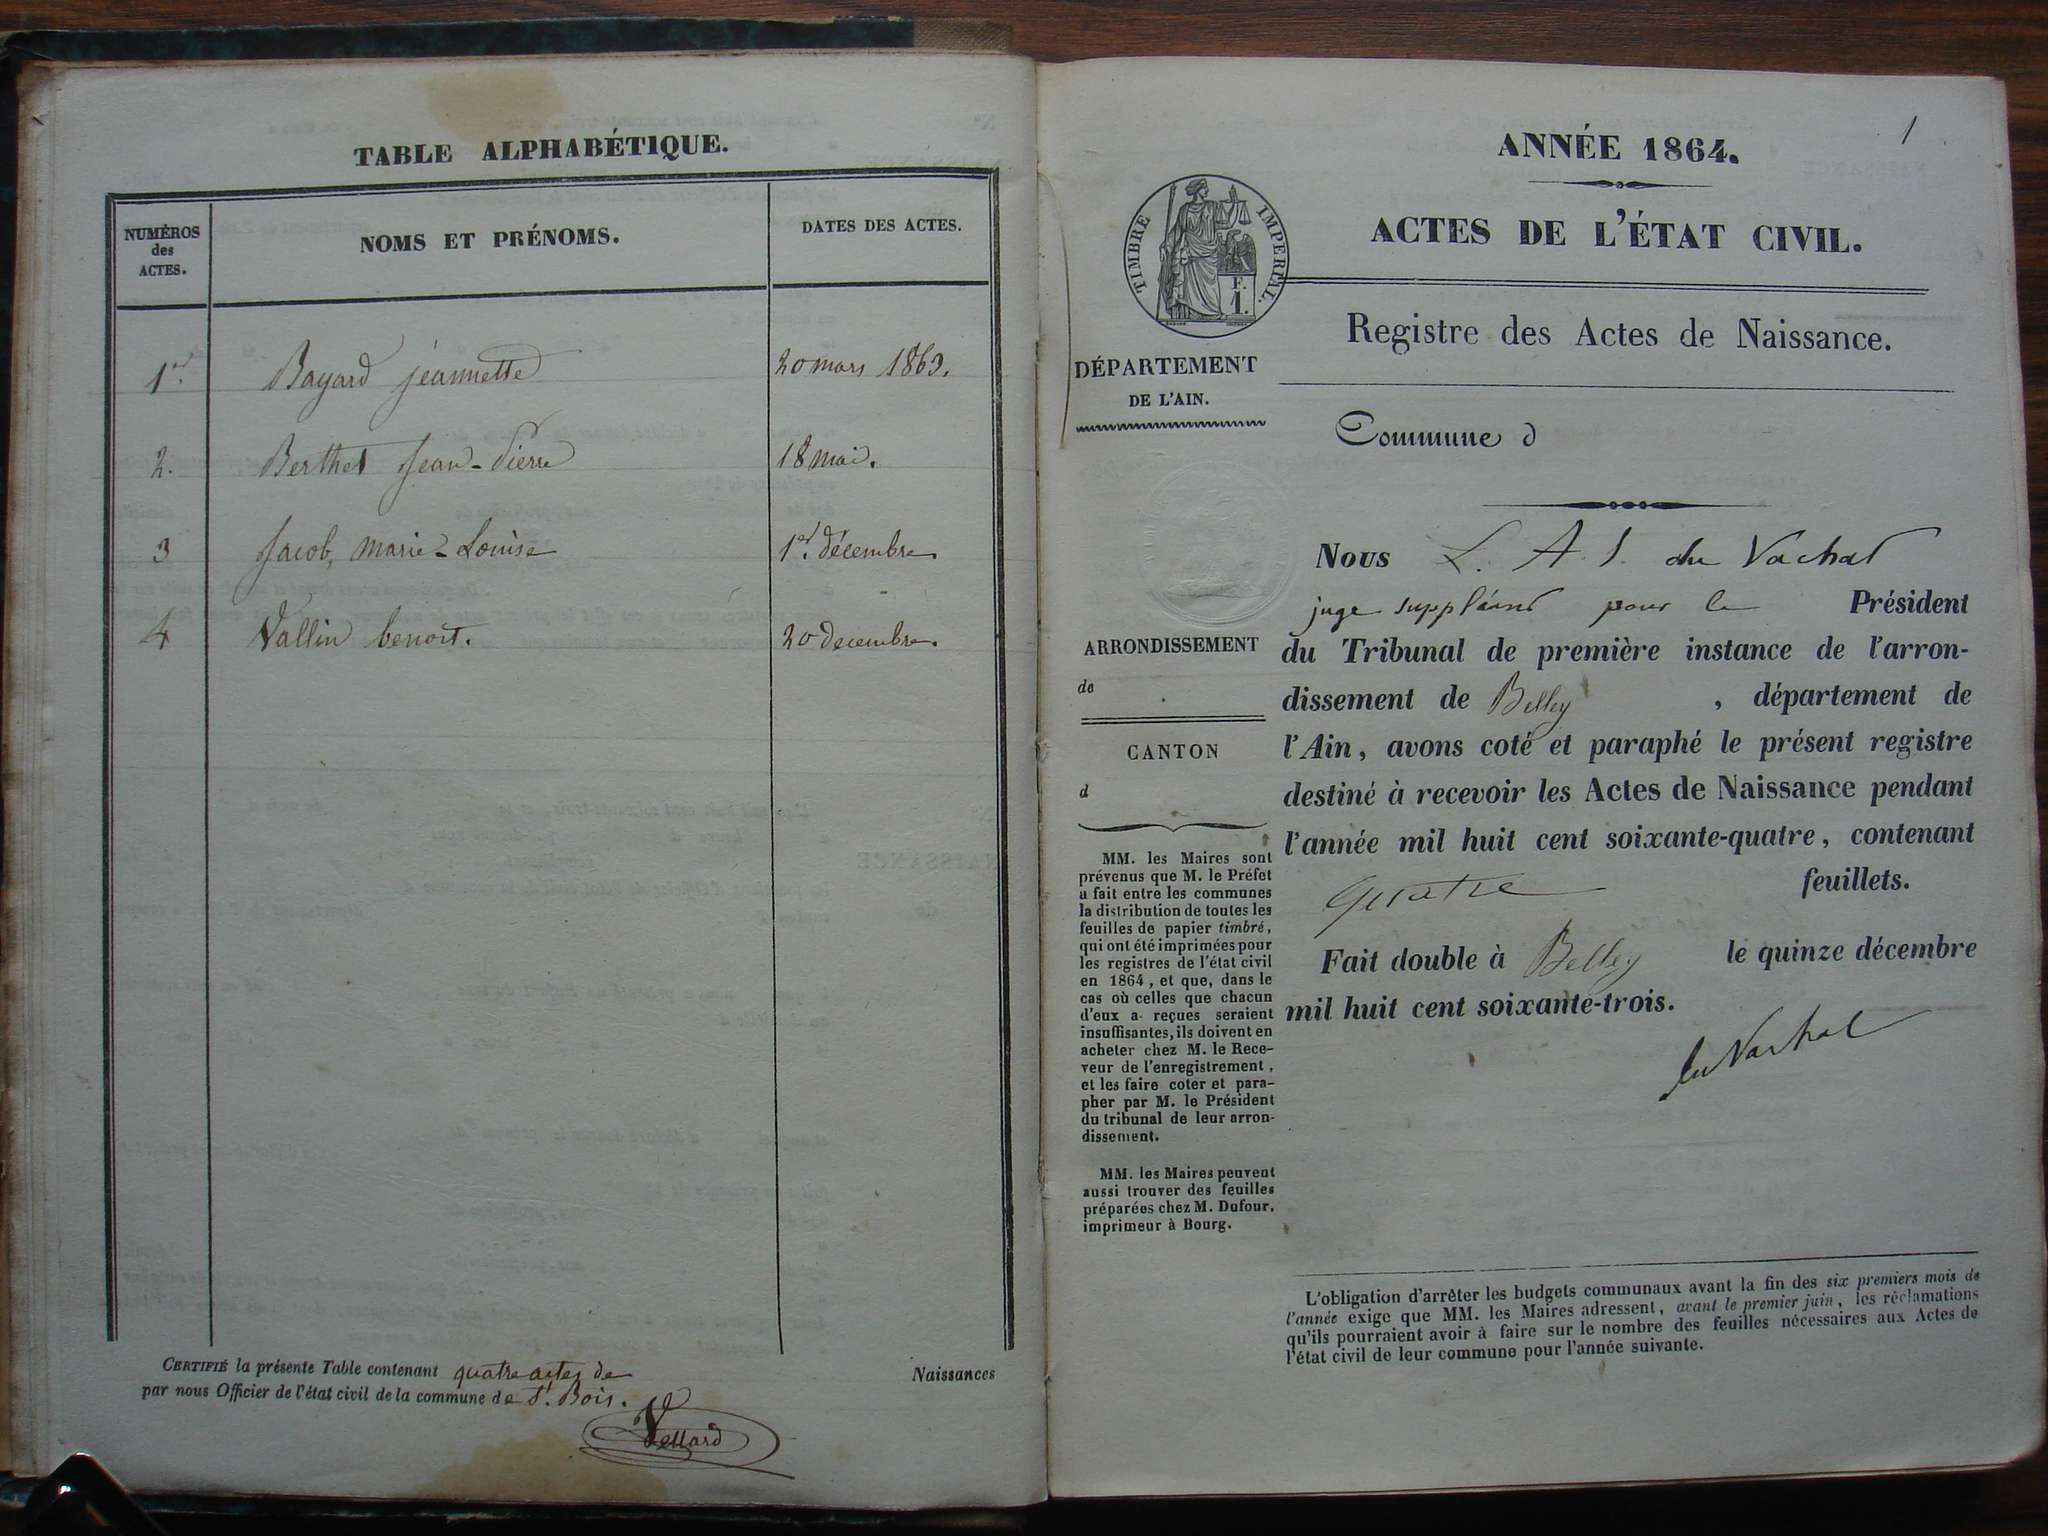 TABLE ALPHABÉTIQUE.
NUMÉROS des ACTES.
NOMS ET PRÉNOMS.
DATES DES ACTES.
1er. Bayard jéannette 20 mars 1863.
2. Berthet Jean-Pierre 18 mai.
3 Jacob, marie-Louise 1er. décembre
4 Vallin benoit. 20 decembre.
CERTIFIÉ la présente Table contenant quatre actes de Naissances
par nous Officier de l'état civil de la commune de St. Bois.
Vellard
1
ANNÉE 1864.
ACTES DE L'ÉTAT CIVIL.
TIMBRE IMPERIAL.
F.
1.
Registre des Actes de Naissance.
DÉPARTEMENT
DE L'AIN.
Commune d
Nous L. A. J. du Vachat
juge suppléant pour le Président
du Tribunal de première instance de l'arron-
dissement de Belley , département de
l'Ain, avons coté et paraphé le présent registre
destiné à recevoir les Actes de Naissance pendant
l'année mil huit cent soixante-quatre, contenant
quatre feuillets.
Fait double à Belley le quinze décembre
mil huit cent soixante-trois.
du Vachat
ARRONDISSEMENT
de
CANTON
d
MM. les Maires sont
prévenus que M. le Préfet
a fait entre les communes
la distribution de toutes les
feuilles de papier timbré,
qui ont été imprimées pour
les registres de l'état civil
en 1864, et que, dans le
cas où celles que chacun
d'eux a reçues seraient
insuffisantes, ils doivent en
acheter chez M. le Rece-
veur de l'enregistrement,
et les faire coter et para-
pher par M. le Président
du tribunal de leur arron-
dissement.
MM. les Maires peuvent
aussi trouver des feuilles
préparées chez M. Dufour,
imprimeur à Bourg.
L'obligation d'arrêter les budgets communaux avant la fin des six premiers mois de
l'année exige que MM. les Maires adressent, avant le premier juin, les réclamations
qu'ils pourraient avoir à faire sur le nombre des feuilles nécessaires aux Actes de
l'état civil de leur commune pour l'année suivante.